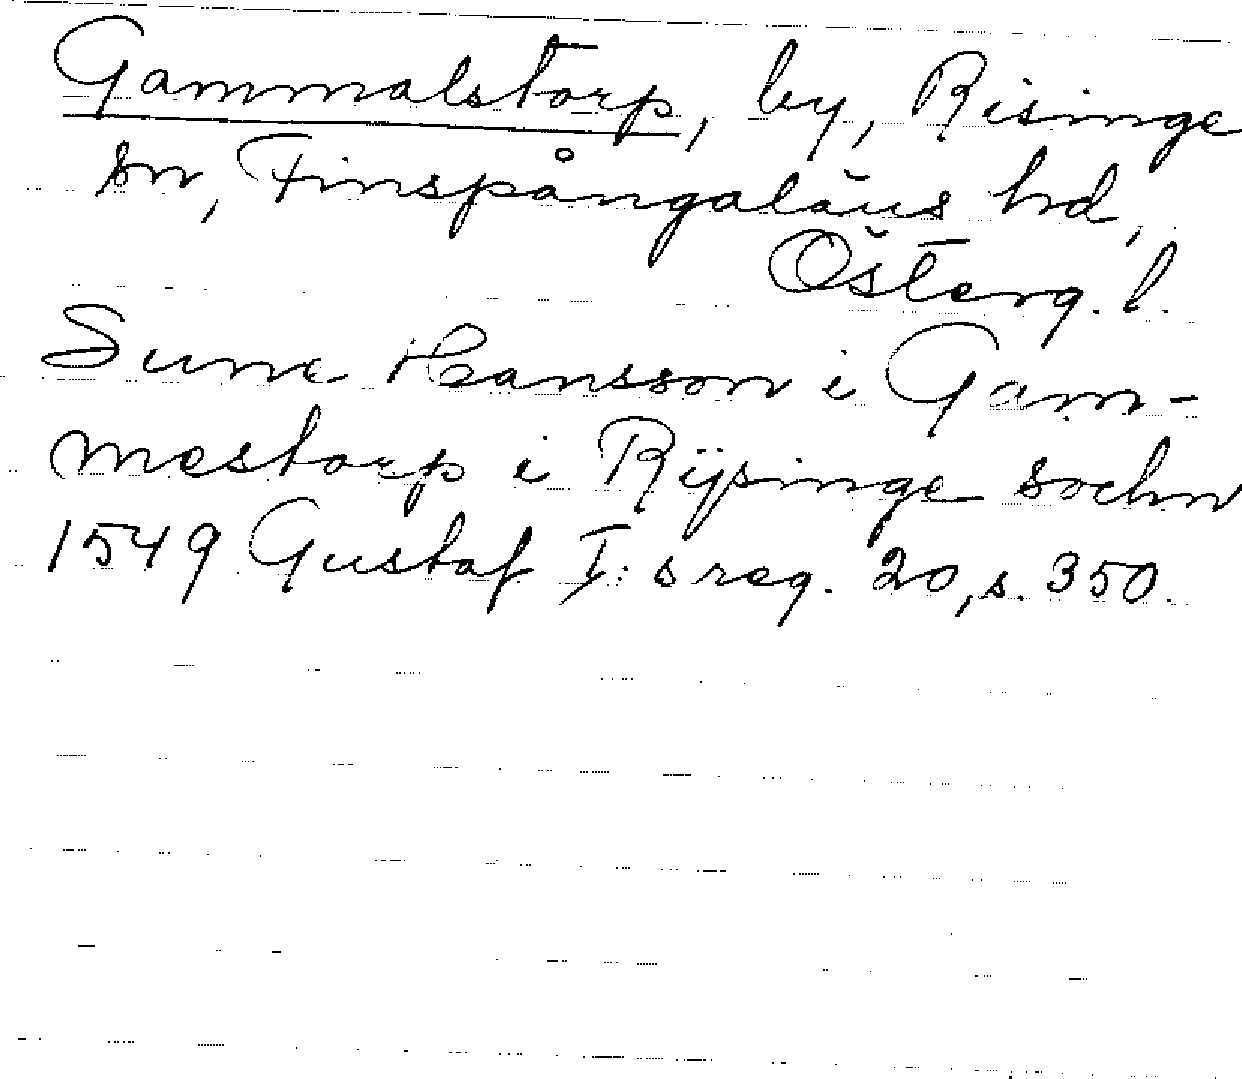 Gammalstorp, by, Risinge
sn, Finspångaläns hd,
Österg. l.
Sune Hansson i Gam-
mestorp i Rijsinge sochn
1549 Gustaf I:s reg. 20, s. 350.